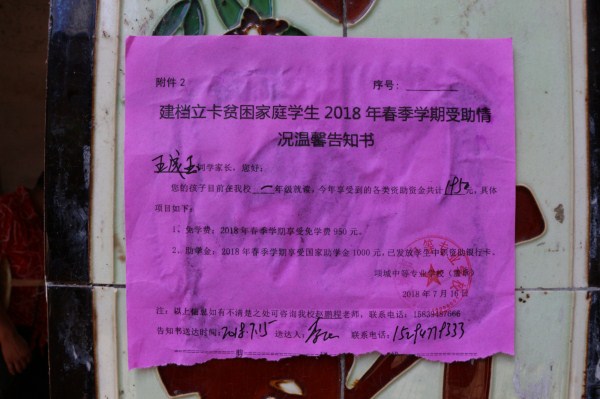 附件2 序号：
建档立卡贫困家庭学生2018年春季学期受助情
况温馨告知书
王成玉同学家长，您好：
您的孩子目前在我校 一 年级就读，今年享受到的各类资助资金共计1950元，具体
项目如下：
1、免学费：2018年春季学期享受免学费950元。
2、助学金：2018年春季学期享受国家助学金1000元，已发放学生中职资助银行卡。
项城中等专业学校（
2018年7月16日
注：以上信息如有不清楚之处可咨询我校 老师，联系电话：
告知书送达时间：2018.7.15 送达人： 联系电话：